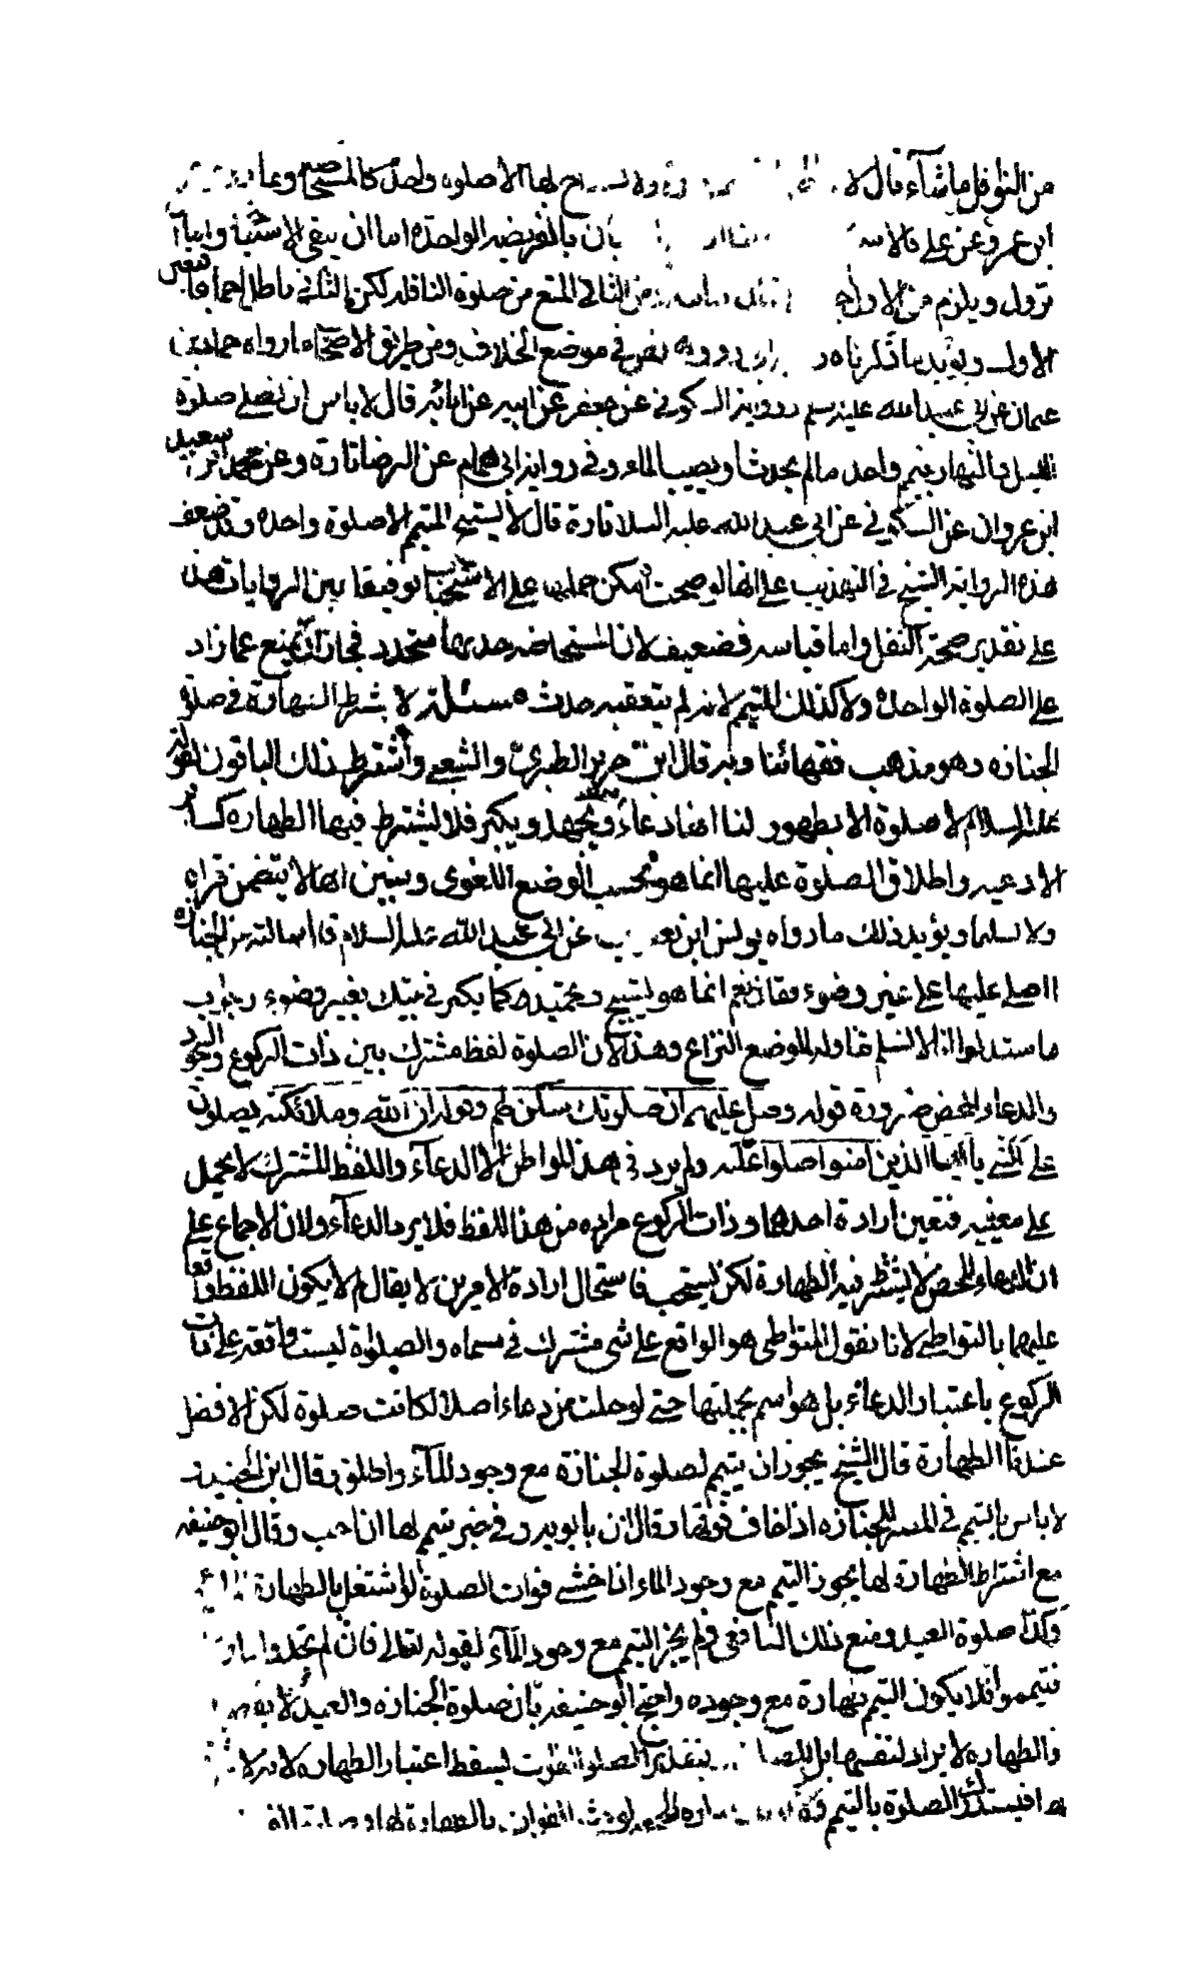 من النوافل ما شاء قال لا يباح لها الا صلوة واحدة كالمستحاضة وعما
ابن عمرو عن علي بان بالفريضة الواحدة اما ان يبقى الاستباحة واما ان
تزول ويلزم من الاول ومن الثاني المنع من صلوة النافلة لكن الثاني باطل اجماعا فتعين
الاول ويؤيد ما ذكرناه نص في موضع الخلاف ومن طريق الاصحاب ما رواه حماد بن
عثمان عن ابي عبد الله عليه سلم ورواية السكوني عن جعفر عن ابيه عن ابائه قال لا باس ان تصلي صلوة
الليل والنهار بتيمم واحد ما لم يحدث او يصيب الماء وفي رواية ابي همام عن الرضا تارة وعن محمد بن سعيد
ابن غزوان عن السكوني عن ابي عبد الله عليه السلام تارة قال لا يستبيح المتيمم الا صلوة واحدة وقد ضعف
هذه الرواية الشيخ في التهذيب على انها لو صحت امكن حملها على الاستحباب توفيقا بين الروايات هذا
على تقدير صحة النقل واما قياسه فضعيف لان المستحاضة حدثها متجدد فجاز ان يمنع عما زاد
على الصلوة الواحدة ولا كذلك المتيمم لانه لم يتعقبه حدث مسئلة لا يشترط الطهارة في صلوة
الجنازة وهو مذهب فقهائنا وبه قال ابن جرير الطبري والشعبي واشترط ذلك الباقون لقوله
عليه السلام لا صلوة الا بطهور لنا انها دعاء وتحميد وتكبير فلا يشترط فيها الطهارة كسائر
الادعية واطلاق الصلوة عليها انما هو بحسب الوضع اللغوي وسنبين انها لا يتضمن قراءة
ولا تسليما ويؤيد ذلك ما رواه يونس ابن يعقوب عن ابي عبد الله عليه السلام قال سالته عن الجنازة
ااصلي عليها على غير وضوء فقال نعم انما هو تسبيح وتحميد كما يكبر في بيتك بغير وضوء وجواب
ما استدلوا انا لا نسلم تناوله لموضع النزاع وهذا لان الصلوة لفظ مشترك بين ذات الركوع والسجود
والدعاء المحض ضرورة قوله وصل عليهم ان صلوتك سكن لهم وقوله ان الله وملائكته يصلون
على النبي يا ايها الذين امنوا صلوا عليه ولم يرد في هذا المواطن الا الدعاء واللفظ المشترك لا يحمل
على معنييه فتعين ارادة احدهما وذات الركوع مراده من هذا اللفظ فلا يرد الدعاء ولان الاجماع على
ان الدعاء المحض لا يشترط فيه الطهارة لكن يستحب فاستحال ارادة الامرين لا يقال لم لا يكون اللفظ واقعا
عليهما بالتواطي لانا نقول المتواطي هو الواقع على شي مشترك في مسماه والصلوة ليست واقعة على ذات
الركوع باعتبار الدعاء بل هو اسم بجملتها حتى لو خلت عن دعاء اصلا لكانت صلوة لكن الافضل
عندنا الطهارة قال الشيخ يجوز ان يتيمم لصلوة الجنازة مع وجود الماء واطلق وقال ابن الجنيد
لا باس بالتيمم في المصر للجنازة اذا خاف فوتها وقال ابن بابويه وفي خبر تيمم لها ان احب وقال ابو حنيفة
مع اشتراط الطهارة لها يجوز التيمم مع وجود الماء اذا خشي فوات الصلوة لو اشتغل بالطهارة
وكذا صلوة العيد ومنع ذلك الشافعي فلم يجز التيمم مع وجود الماء لقوله تعالى فان لم تجدوا ماء
فتيمموا فلا يكون التيمم طهارة مع وجوده واحتج ابو حنيفة بان صلوة الجنازة والعيد لا
والطهارة لا يراد لنفسها بل للصلوة فبتقدير الصلوة لفوت يسقط اعتبار الطهارة
فيستدرك الصلوة بالتيمم